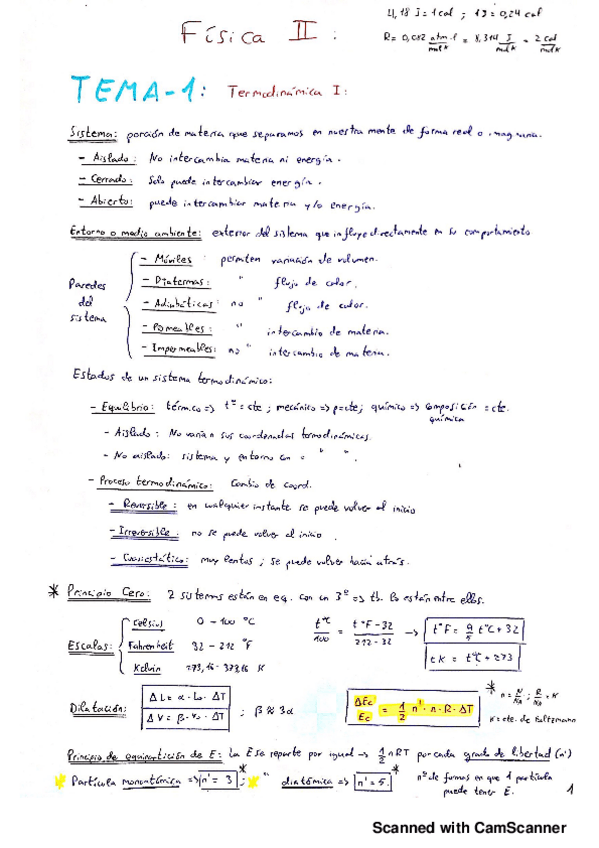 4,18 J = 1 cal ; 1 J = 0,24 cal
Física II :
R = 0,082 atm·l/mol k = 8,314 J/mol k = 2 cal/mol k
TEMA-1: Termodinámica I:
Sistema: porción de materia que separamos en nuestra mente de forma real o imaginaria.
- Aislado: No intercambia materia ni energía.
- Cerrado: Solo puede intercambiar energía.
- Abierto: puede intercambiar materia y/o energía.
Entorno o medio ambiente: exterior del sistema que influye directamente en su comportamiento
Paredes del sistema
- Móviles : permiten variación de volumen.
- Diatermas: " flujo de calor.
- Adiabáticas: no " flujo de calor.
- Permeables: " intercambio de materia.
- Impermeables: no " intercambio de materia.
Estados de un sistema termodinámico:
- Equilibrio: térmico => tª = cte ; mecánico => p=cte; químico => composición química = cte.
- Aislado: No varían sus coordenadas termodinámicas.
- No aislado: sistema y entorno con = " ".
- Proceso termodinámico: Cambio de coord.
- Reversible: en cualquier instante se puede volver al inicio
- Irreversible: no se puede volver al inicio.
- Cuasiestático: muy lentos ; se puede volver hacia atrás.
* Principio Cero: 2 sistemas están en eq. con un 3º => tb. lo están entre ellos.
Escalas:
Celsius 0 - 100 ºC
Fahrenheit 32 - 212 ºF
Kelvin 273,16 - 373,16 K
tºC/100 = tºF-32/212-32 → tºF = 9/5 tºC + 32
tK = tºC + 273
Dilatación: ΔL = α·L₀·ΔT
ΔV = β·V₀·ΔT ; β ≈ 3α
ΔEc/Ec = 1/2 n'·n·R·ΔT
* n = N/NA ; R/NA = K
K = cte. de Boltzmann
Principio de equipartición de E: La E se reparte por igual → 1/2 nRT por cada grado de libertad (n')
* Partícula monoatómica => n' = 3 * ; * " diatómica => n' = 5. *
nº de formas en que 1 partícula puede tener E.
1
Scanned with CamScanner